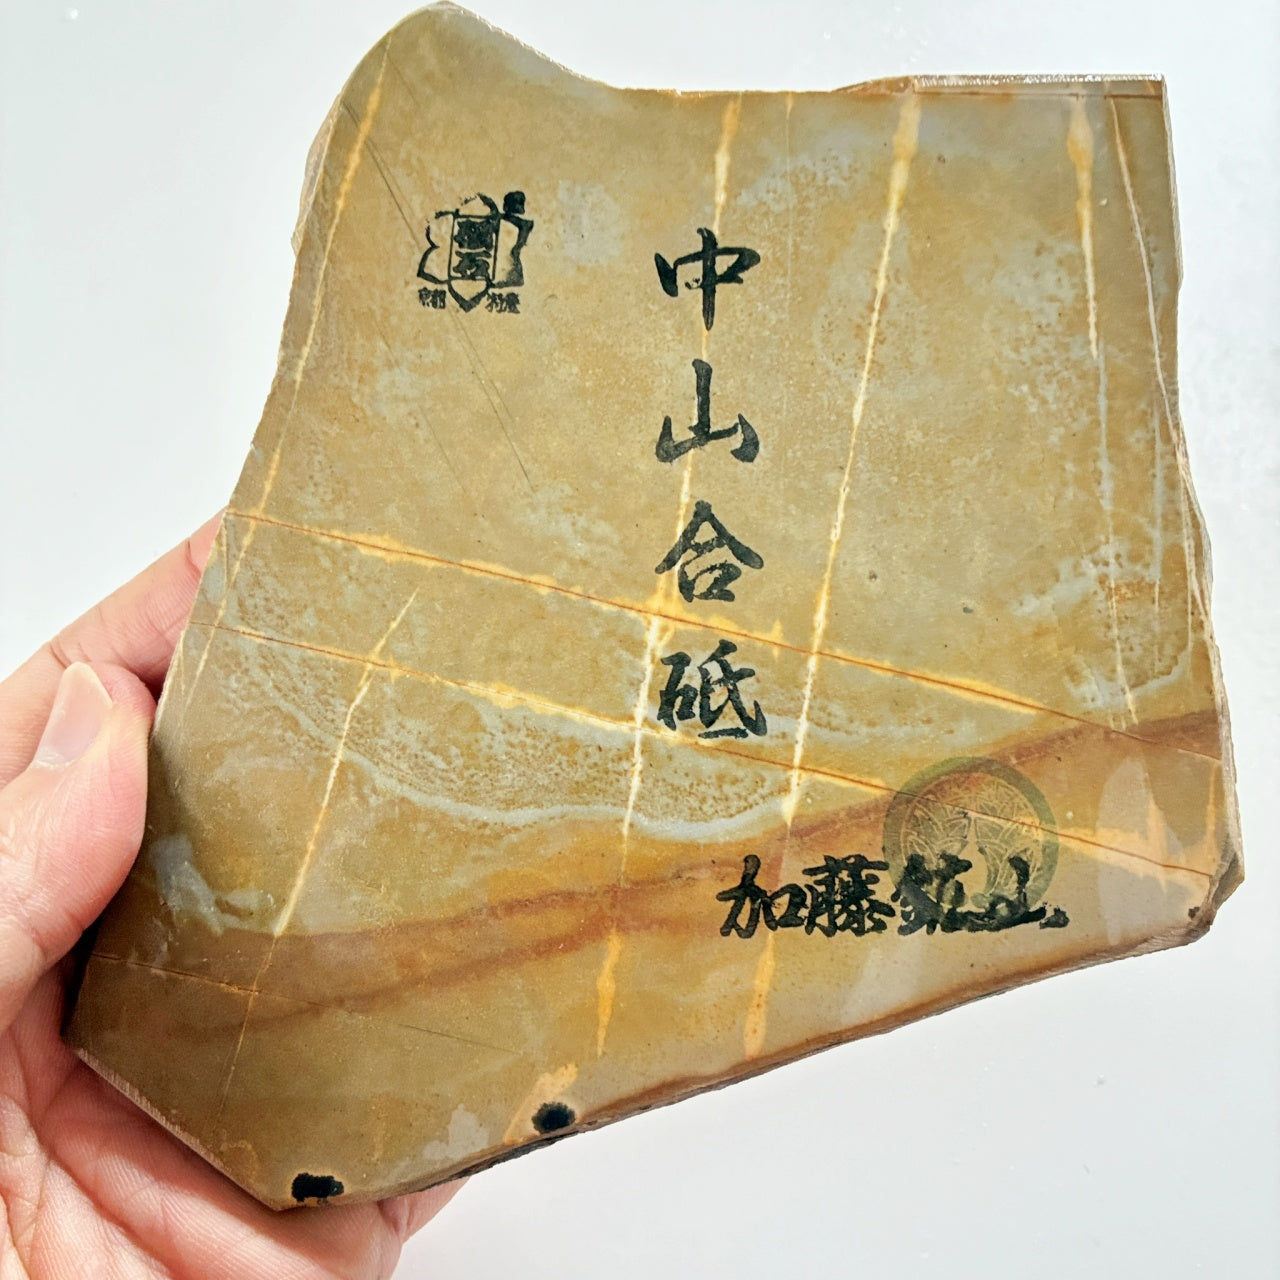 中山合砥
加藤鉱山
京都